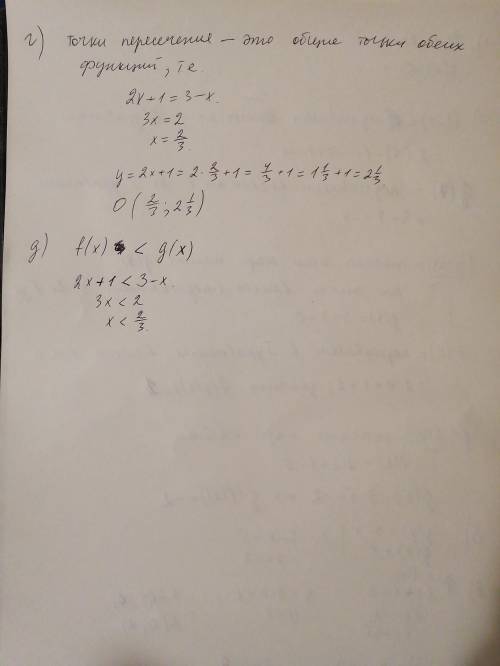 г) точки пересечения – это общие точки обеих
функций, т.е.
2x+1=3-x.
3x=2
x=2/3.
y=2x+1=2·2/3+1=4/3+1=1 1/3+1=2 1/3
O(2/3; 2 1/3)
д) f(x) < g(x)
2x+1<3-x
3x<2
x<2/3.